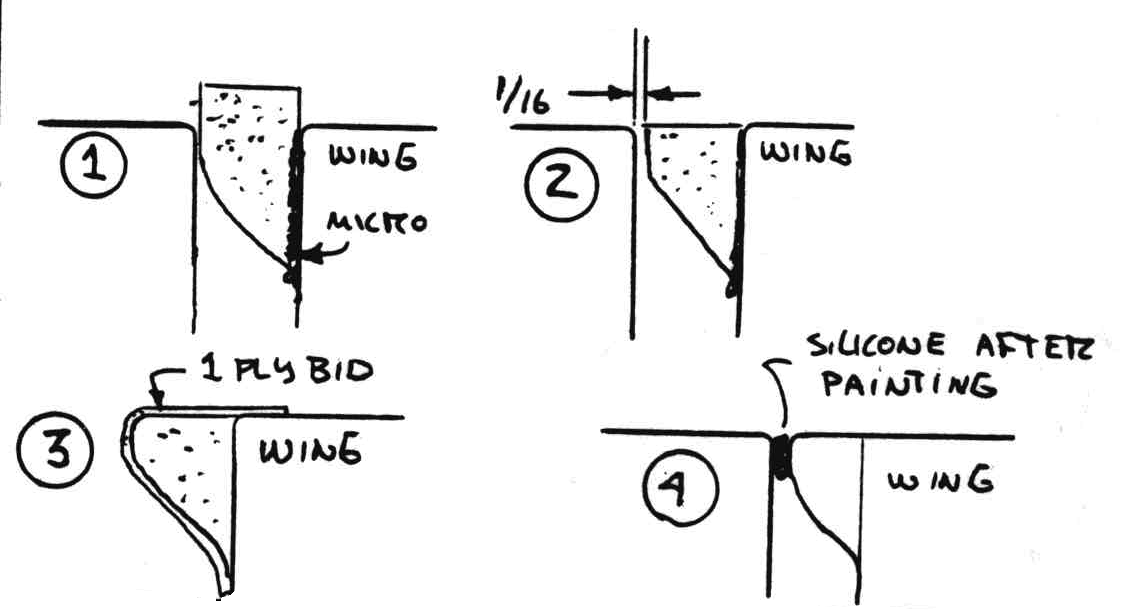 1
WING
MICRO
1/16
2
WING
3
1 PLY BID
WING
4
SILICONE AFTER
PAINTING
WING